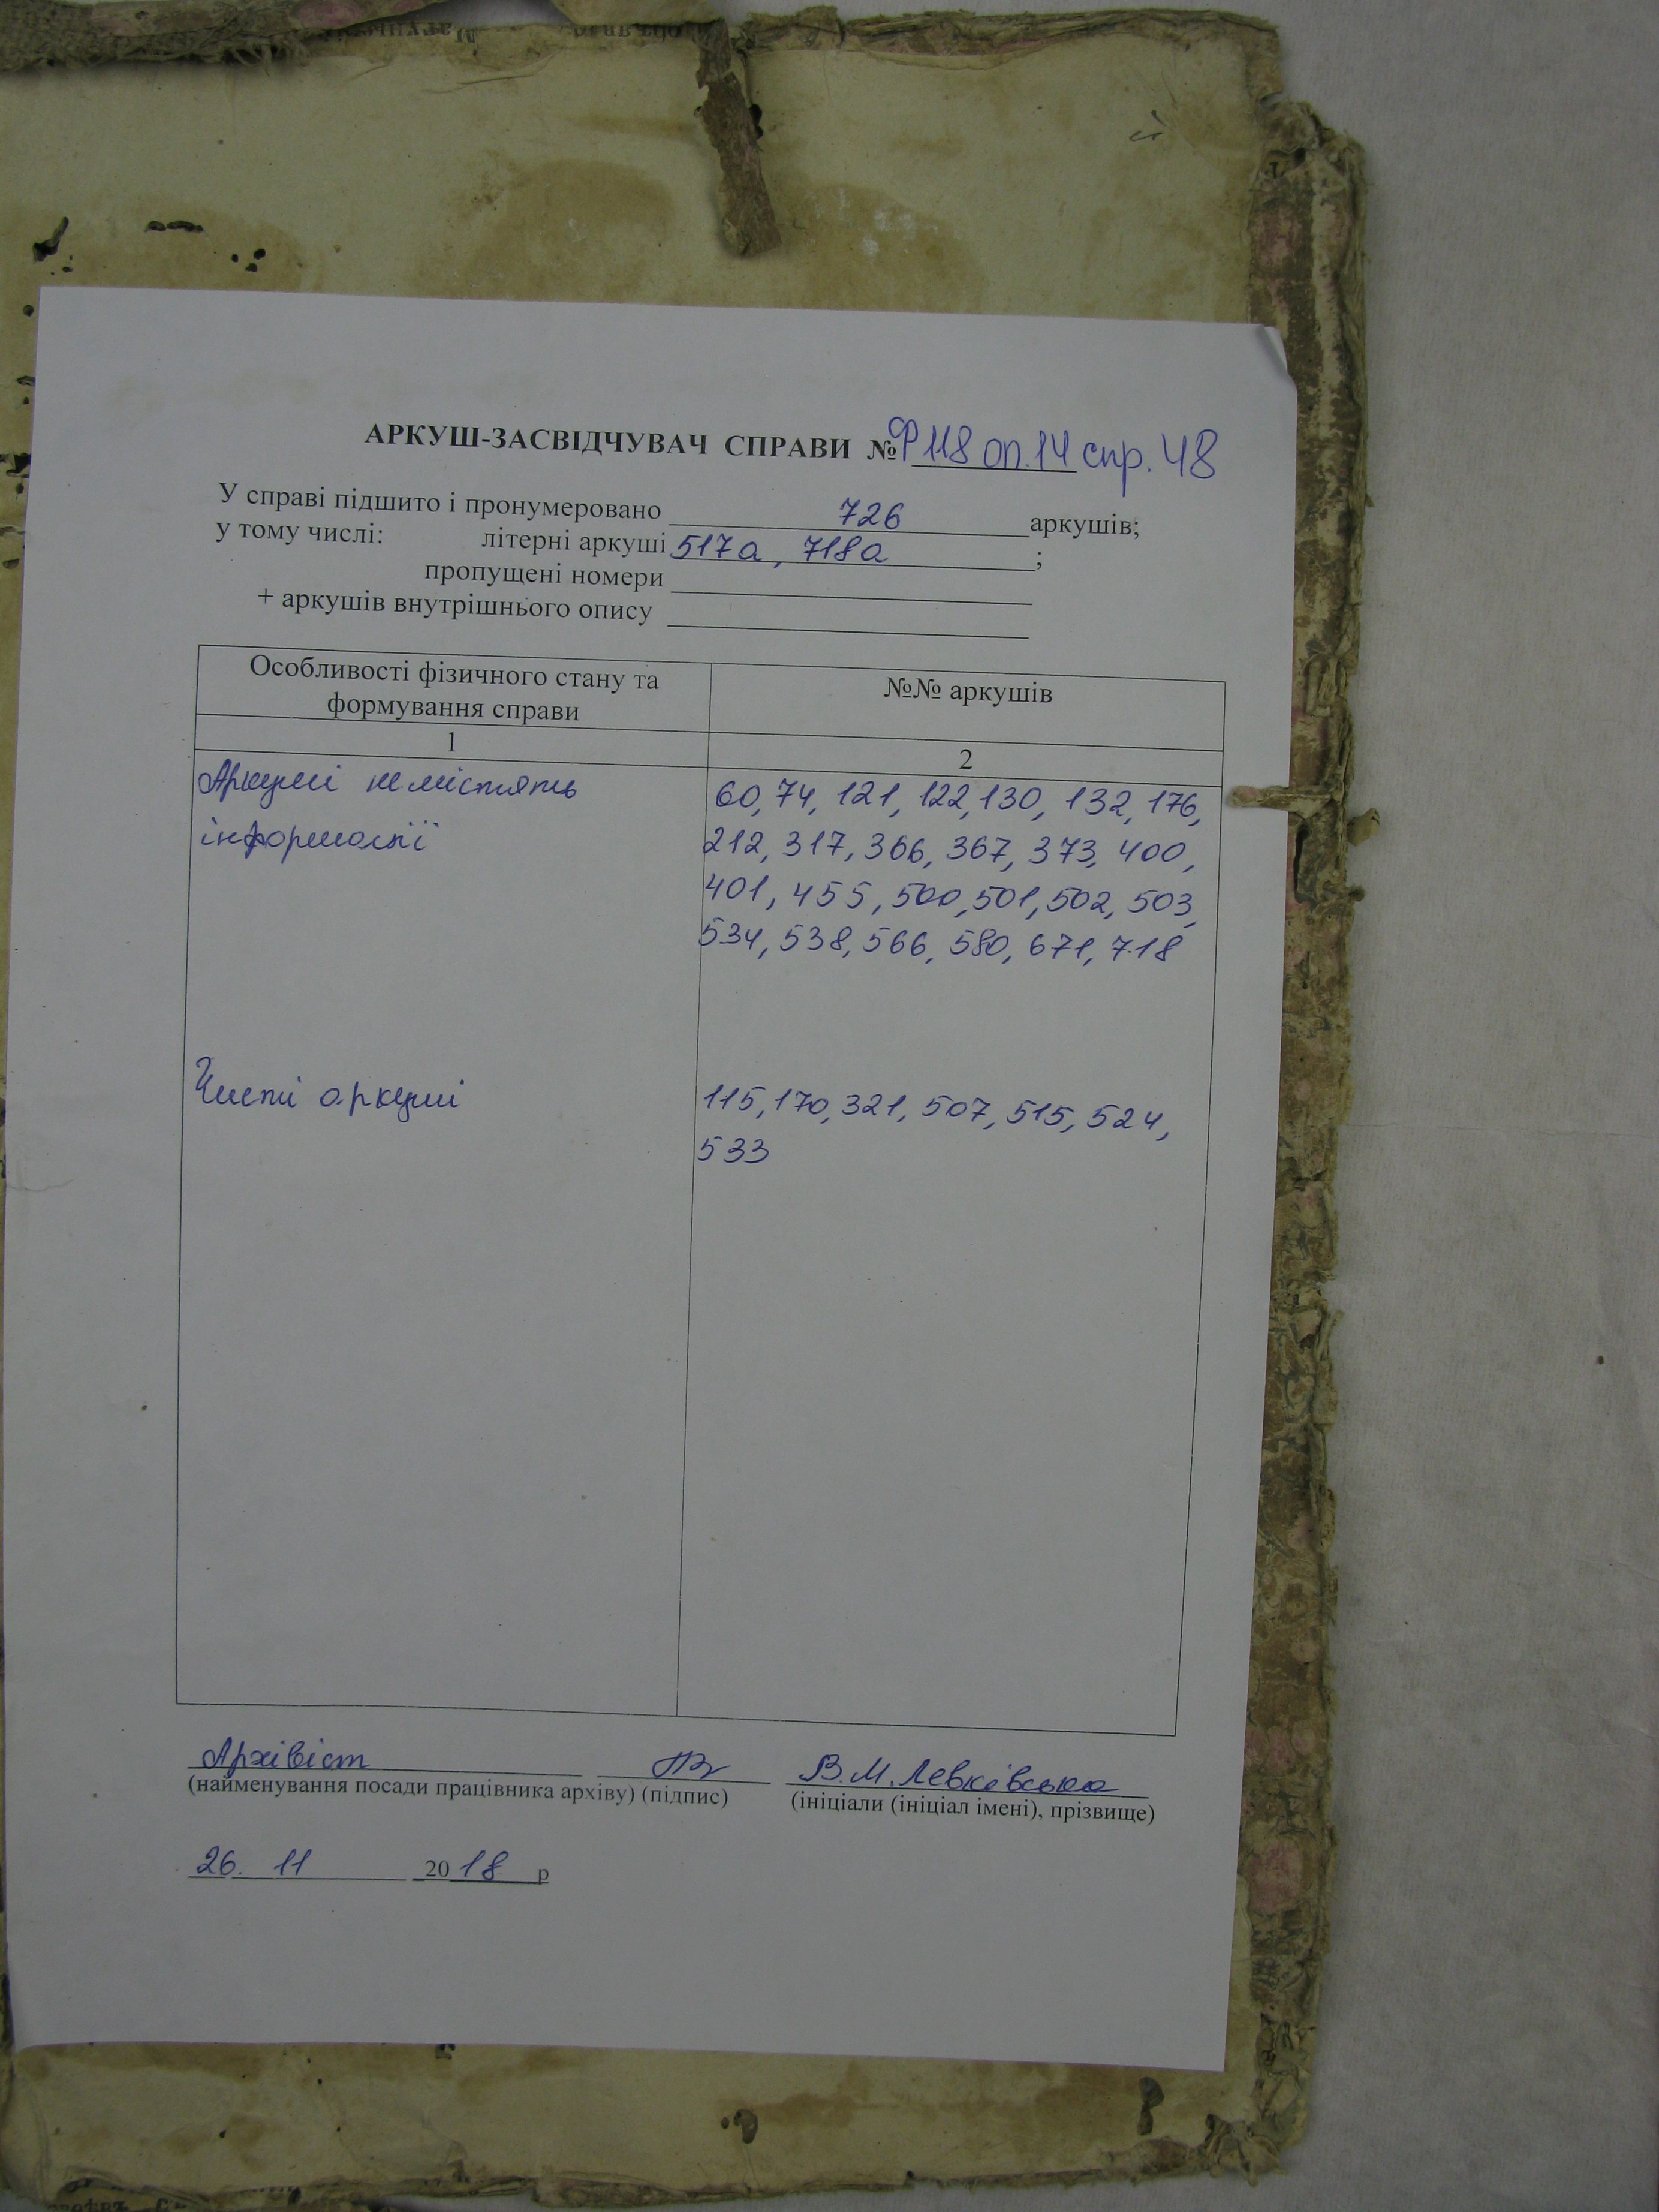 АРКУШ-ЗАСВІДЧУВАЧ СПРАВИ № Ф 118 оп. 14 спр. 48
У справі підшито і пронумеровано 726 аркушів;
у тому числі: літерні аркуші 517а, 718а ;
пропущені номери
+ аркушів внутрішнього опису
Особливості фізичного стану та
формування справи
№№ аркушів
1
2
Аркуші не містять
інформації
60, 74, 121, 122, 130, 132, 176,
212, 317, 366, 367, 373, 400,
401, 455, 500, 501, 502, 503,
534, 538, 566, 580, 671, 718
Чисті аркуші
115, 170, 321, 507, 515, 524,
533
Архівіст В.М. Левківська
(найменування посади працівника архіву) (підпис) (ініціали (ініціал імені), прізвище)
26. 11 2018 р